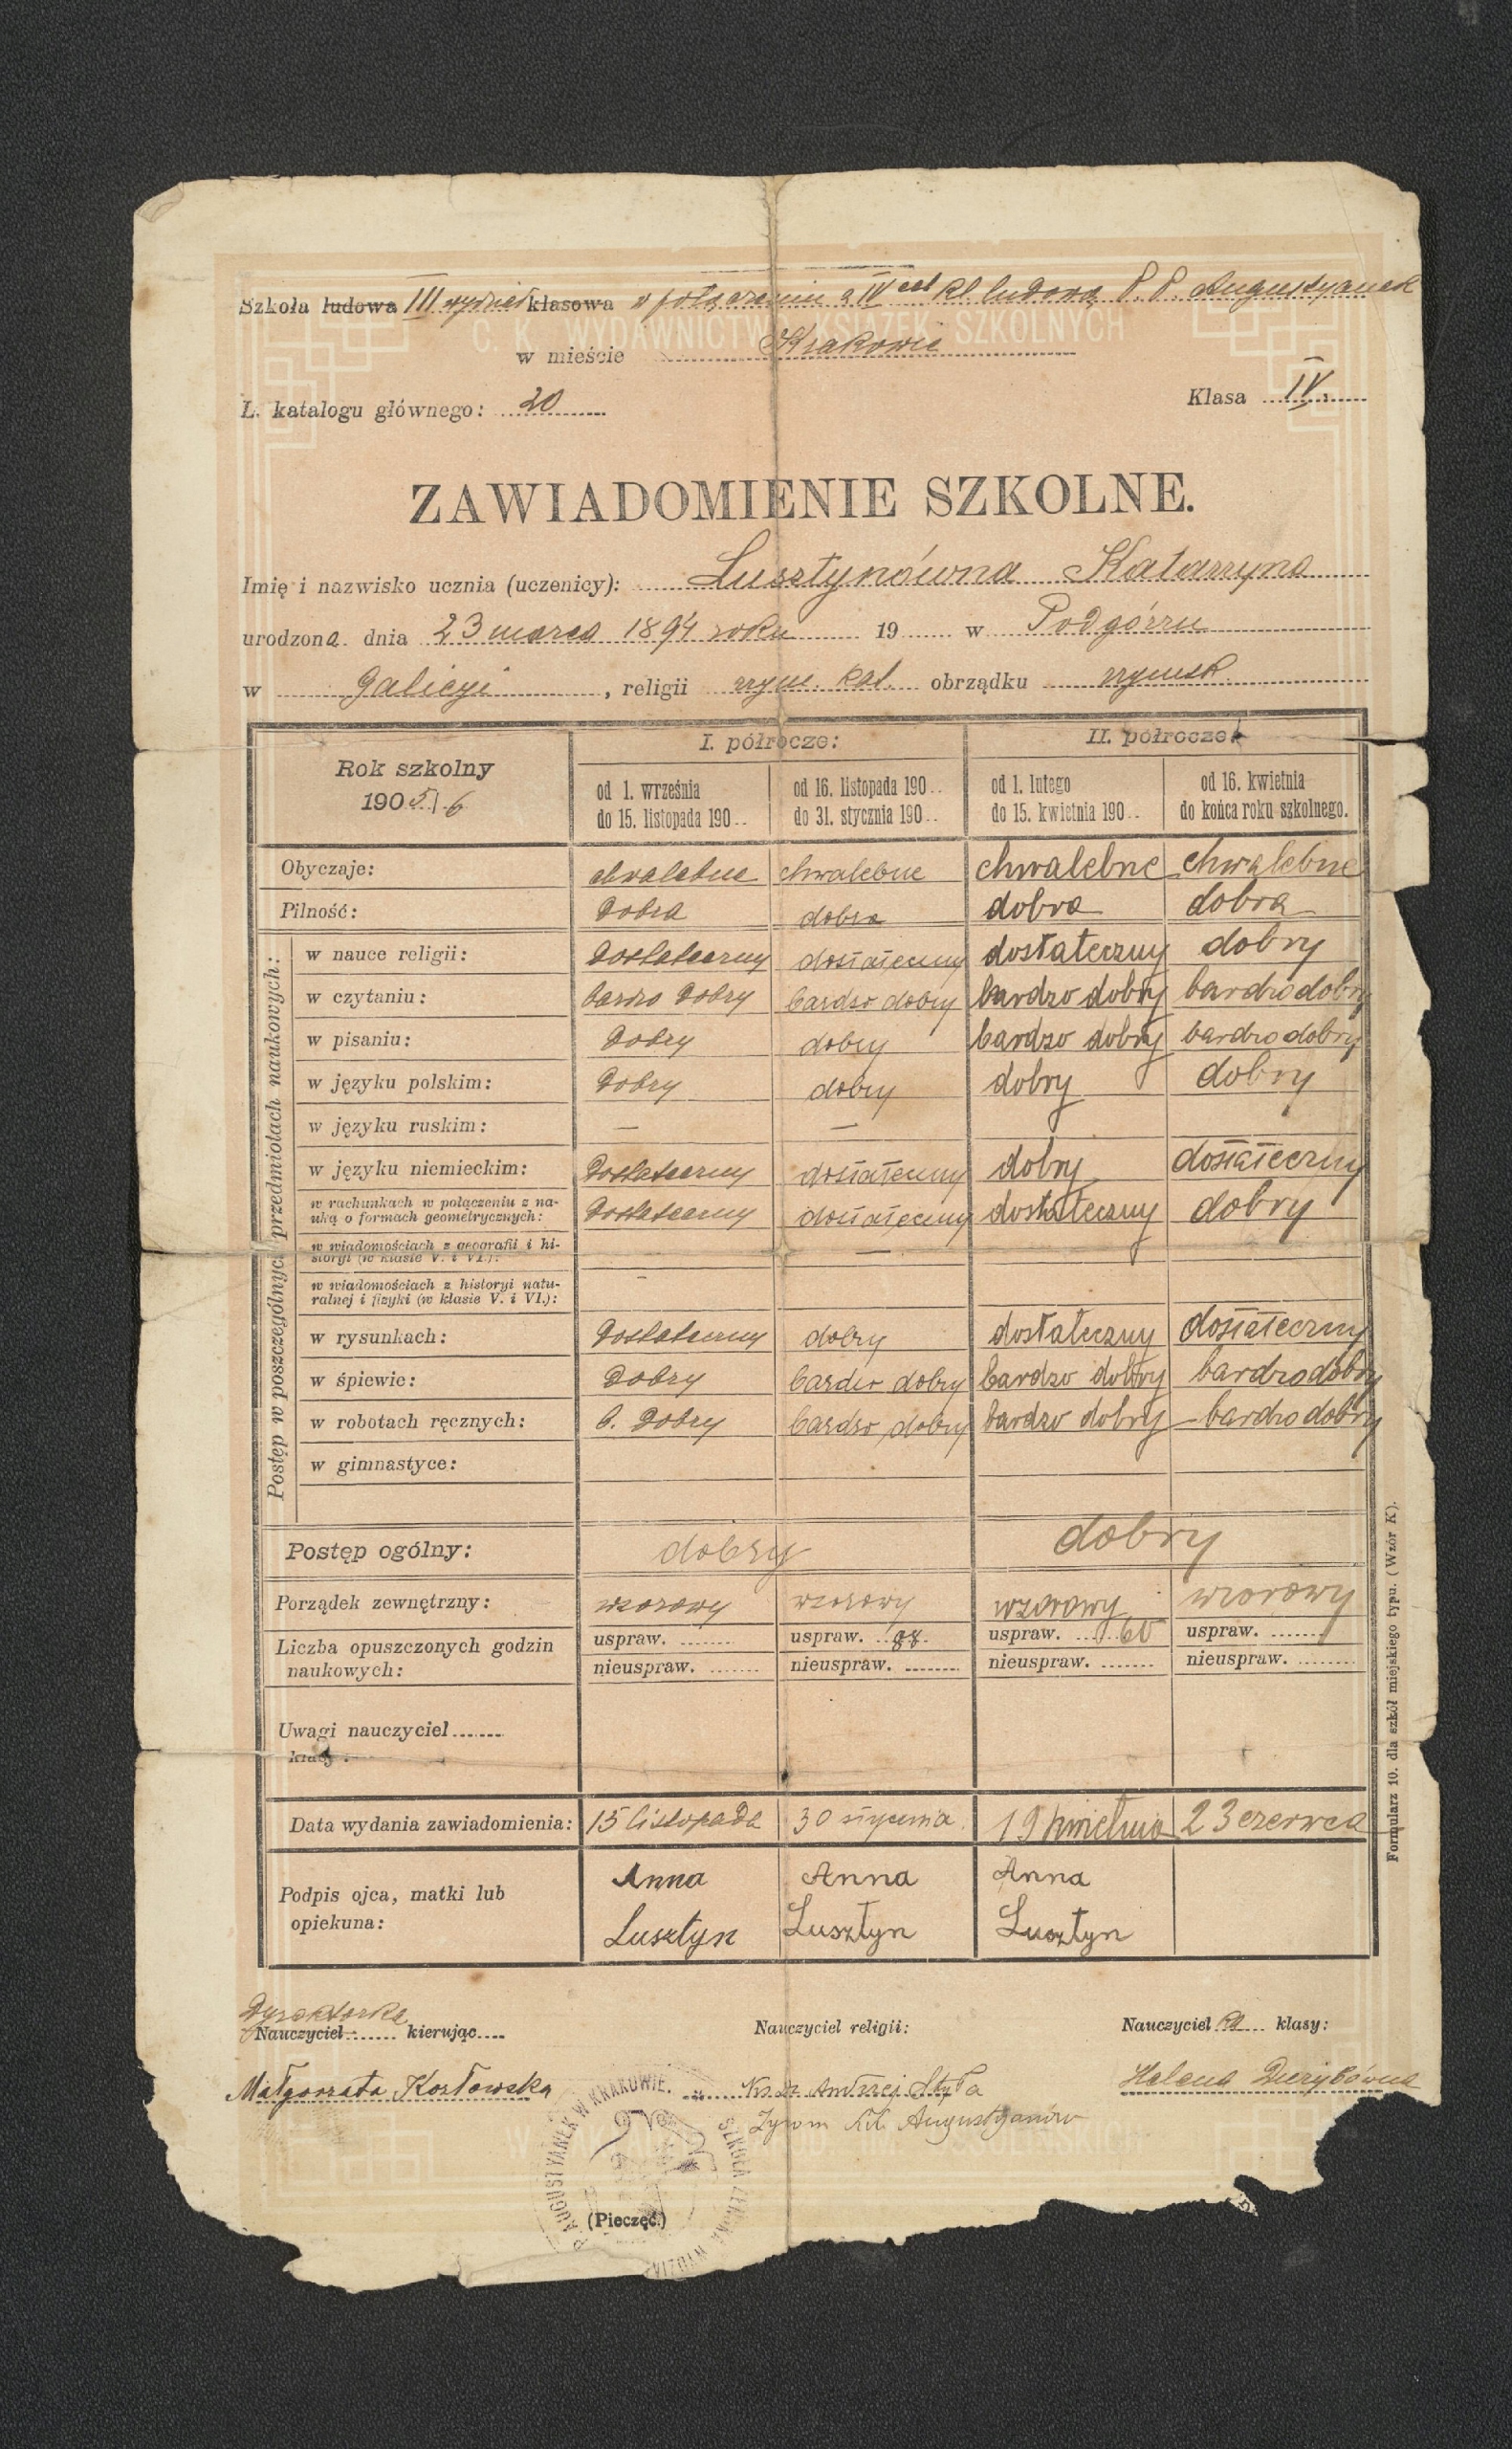 Szkoła ludowa III wydział klasowa w połączeniu z IV kl. ludową P. P. Augustyanek
C. K. WYDAWNICTWO KSIĄŻEK SZKOLNYCH
w mieście Krakowie
L. katalogu głównego: 20 Klasa IV.
ZAWIADOMIENIE SZKOLNE.
Imię i nazwisko ucznia (uczenicy): Lusztynówna Katarzyna
urodzona dnia 23 marca 1894 roku 19 w Podgórzu
w Galicyi, religii rzym. kat. obrządku rzymsk.
Rok szkolny 1905/6
I. półrocze: II. półrocze:
od 1. września do 15. listopada 190 od 16. listopada 190 do 31. stycznia 190 od 1. lutego do 15. kwietnia 190 od 16. kwietnia do końca roku szkolnego.
Obyczaje: chwalebne chwalebne chwalebne chwalebne
Pilność: dobra dobra dobra dobra
Postęp w poszczególnych przedmiotach naukowych:
w nauce religii: dostateczny dostateczny dostateczny dobry
w czytaniu: bardzo dobry bardzo dobry bardzo dobry bardzo dobry
w pisaniu: dobry dobry bardzo dobry bardzo dobry
w języku polskim: dobry dobry dobry dobry
w języku ruskim: — —
w języku niemieckim: dostateczny dostateczny dobry dostateczny
w rachunkach w połączeniu z na-
uką o formach geometrycznych: dostateczny dostateczny dostateczny dobry
w wiadomościach z geografii i hi-
storyi (w klasie V. i VI.): —
w wiadomościach z historyi natu-
ralnej i fizyki (w klasie V. i VI.): —
w rysunkach: dostateczny dobry dostateczny dostateczny
w śpiewie: dobry bardzo dobry bardzo dobry bardzo dobry
w robotach ręcznych: b. dobry bardzo dobry bardzo dobry bardzo dobry
w gimnastyce:
Postęp ogólny: dobry dobry
Porządek zewnętrzny: wzorowy wzorowy wzorowy wzorowy
Liczba opuszczonych godzin uspraw. uspraw. 98. uspraw. 60 uspraw.
naukowych: nieuspraw. nieuspraw. nieuspraw. nieuspraw.
Uwagi nauczyciel
klasy:
Data wydania zawiadomienia: 15 listopada 30 stycznia 19 kwietnia 23 czerwca
Podpis ojca, matki lub Anna Anna Anna
opiekuna: Lusztyn Lusztyn Lusztyn
Formularz 10. dla szkół miejskiego typu. (Wzór K).
Dyrektorka
Nauczyciel kierując Nauczyciel religii: Nauczyciel ka klasy:
Małgorzata Kozłowska Andrzej Helena
Augustyanów
P. AUGUSTYANEK W KRAKOWIE. SZKOŁA ŻEŃSKA WYDZIAŁ
(Pieczęć.)